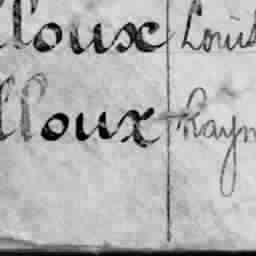 lloux Louis
lloux Raym